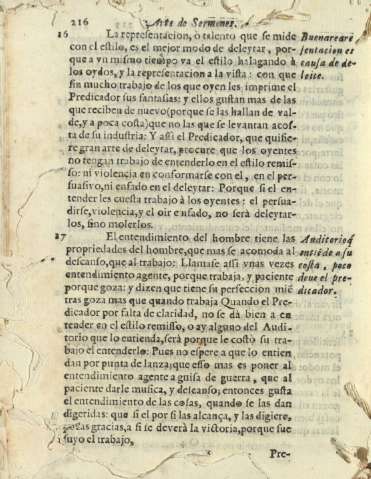 216 Arte de Sermones.
16 La representacion, o talento que se mide
con el estilo, es el mejor modo de deleytar, por-
que a vn mismo tiempo va el estilo halagando à
los oydos, y la representacion a la vista: con que
sin mucho trabajo de los que oyen les imprime el
Predicador sus fantasias: y ellos gustan mas de las
que reciben de nuevo (porque se las hallan de val-
de, y a poca costa) que no las que se levantan acos-
ta de su industria: Y assi el Predicador, que quisie-
re gran arte de deleytar, procure que los oyentes
no tengan trabajo de entenderlo en el estilo remis-
so: ni violencia en conformarse con el, en el per-
suasivo, ni enfado en el deleytar: Porque si el en-
tender les cuesta trabajo à los oyentes: el persua-
dirse, violencia, y el oir enfado, no serà deleytar-
los, sino molerlos.
Buena rare
sentacion es
causa de de-
leite.
17 El entendimiento del hombre tiene las
propriedades del hombre, que mas se acomoda al
descanso, que al trabajo: Llamase assi vnas vezes
entendimiento agente, porque trabaja, y paciente
porque goza: y dizen que tiene su perfeccion miē
tras goza mas que quando trabaja Quando el Pre-
dicador por falta de claridad, no se dà bien a en
tender en el estilo remisso, o ay alguno del Audi-
torio que lo entienda, serà porque le costò su tra-
bajo el entenderlo: Pues no espere a que lo entien
dan por punta de lanza; que esso mas es poner al
entendimiento agente a guisa de guerra, que al
paciente darle musica, y descanso; entonces gusta
el entendimiento de las cosas, quando se las dan
digeridas: que si el por si las alcança, y las digiere,
pocas gracias, a si se deverà la victoria, porque fue
suyo el trabajo,
Auditorio q̄
entiēde a su
costa, poco
deue el pre-
dicador.
Pre-